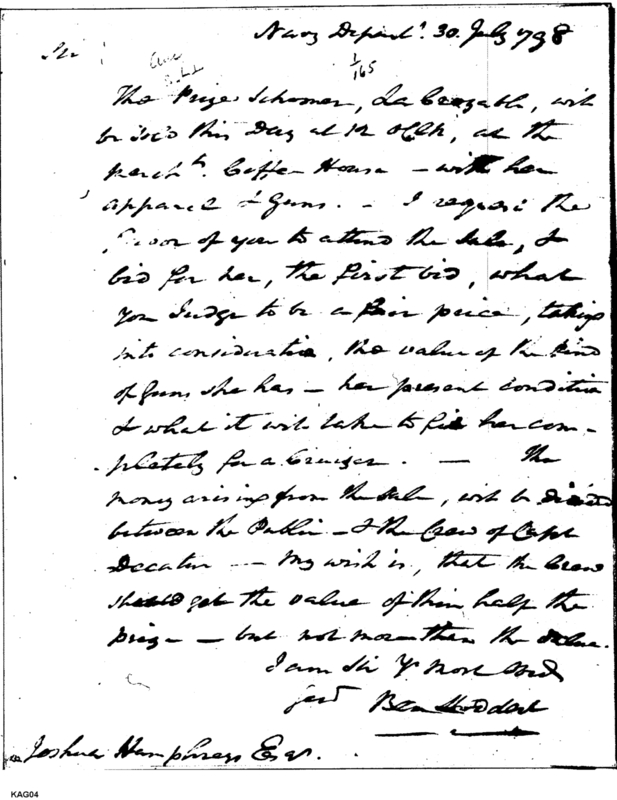 Navy Depart. 30. July 1798
Sir
1/165
The Prize Schooner, La Croyable, will
be sold this Day at 12 oClk, at the
Merchts. Coffee House – with her
apparel & Guns. – I request the
favor of you to attend the sale, &
bid for her, the first bid, what
you Judge to be a fair price, taking
into consideration, the value of the kind
of Guns she has – her present condition
& what it will take to fit her com-
pletely for a Cruizer. — The
money arising from the sale, will be divided
between the Public – & the Crew of Capt
Decatur — My wish is, that the Crew
should get the value of their half the
prize – but not more than the value.
I am Sir Yr most Obed
Servt
Ben Stoddert
Joshua Humphreys Esqr.
KAG04